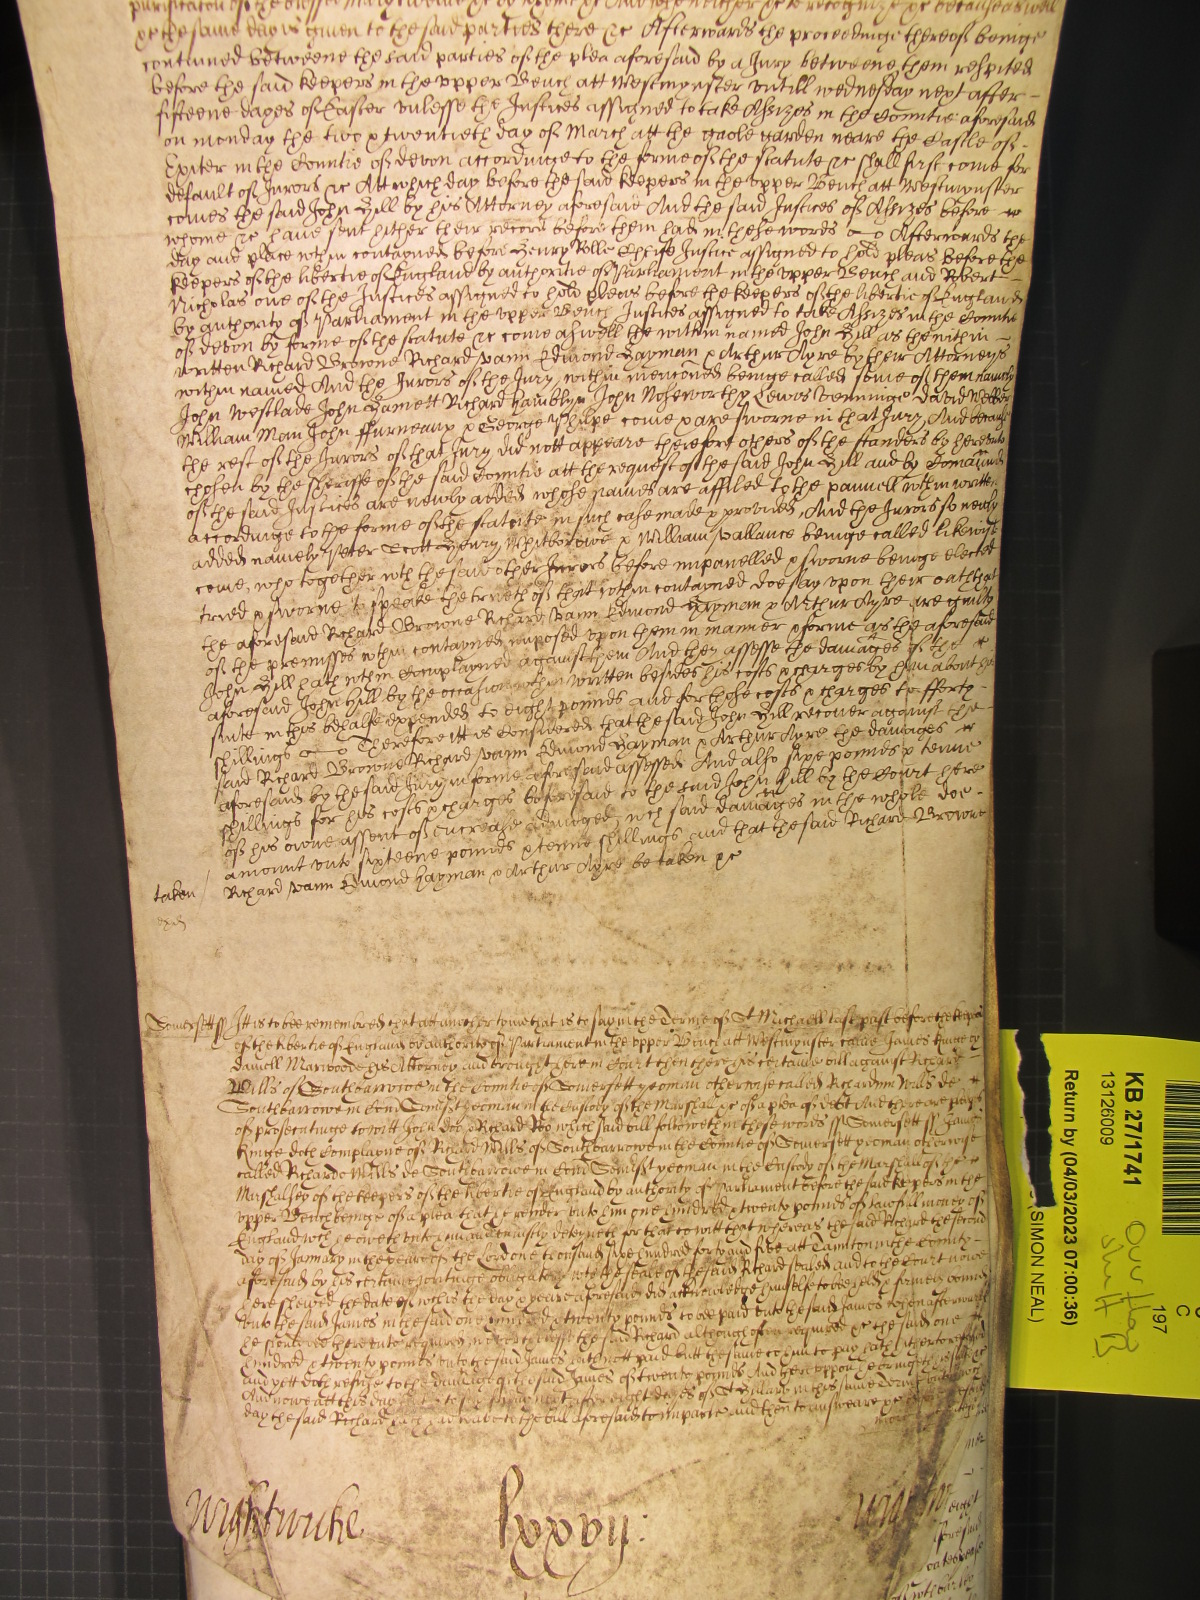 purification of the blessed Mary
&c the same day is given to the said parties there &c Afterwards the proceedinge thereof beinge
continued betweene the said parties of the plea aforesaid by a Jury betweene them respited
before the said Keepers in the upper Bench att Westmynster untill wednesday next after
fifteene dayes of Easter unlesse the Justices assigned to take Assizes in the Countie aforesaid
on monday the two & twentieth day of March att the gaole garden neare the Castle of
Exiter in the Countie of devon accordinge to the forme of the statute &c shall first come for
default of Jurors &c Att which day before the said Keepers in the upper Bench att Westmynster
comes the said John Hill by his Attorney aforesaid And the said Justices of Assizes before
whome &c have sent hither their record before them had in these words Afterwards the
day and place within contayned before Henry Rolle Chiefe Justice assigned to hold pleas before the
keepers of the libertie of England by authoritie of Parliament in the upper Bench and Robert
Nicholas one of the Justices assigned to hold pleas before the keepers of the libertie of England
by authority of Parliament in the upper Bench Justices assigned to take Assizes in the Countie
of devon by forme of the statute &c come aswell the within named John Hill as the within
written Richard Browne Richard Vann Edmond Hayman & Arthur Ayre by their Attorneys
within named And the Jurors of the Jury within menconed beinge called some of them namely
John Westlade John Hamett Richard Hamblyn John Noseworthy Lewis Venninge David Webber
William Man John ffurneaux & George Philpe come & are sworne in that Jury And because
the rest of the Jurors of that Jury did nott appeare therefore others of the standers by hereto
chosen by the Sheriffe of the said Countie att the request of the said John Hill and by Comaund
of the said Justices are newly added whose names are affiled to the pannell within written
accordinge to the forme of the statute in such case made & provided And the Jurors so newly
added namely Peter Scott Henry Whitborowe & William Vallance beinge called likewise
come, who together with the said other Jurors before impanelled & sworne beinge elected
tried & sworne to speake the trueth of that within contayned doe say upon their oath that
the aforesaid Richard Browne Richard Vann Edmond Hayman & Arthur Ayre are guilty
of the premisses within contayned imposed upon them in manner & forme as the aforesaid
John Hill hath within Complayned against them And they assesse the damages of the
aforesaid John Hill by the occasion within written besides his costs & charges by him about his
suite in this behalfe expended to eight pounds and for those costs & charges to fforty
shillings Therefore itt is Considered that the said John Hill recover against the
said Richard Browne Richard Vann Edmond Hayman & Arthur Ayre the damages
aforesaid by the said Jury in forme aforesaid assessed And also sixe pounds & tenne
shillings for his costs & charges beforesaid to the said John Hill by the Court here
of his owne assent of encrease adiudged, wch said damages in the whole doe
amount unto sixteene pounds & tenne shillings and that the said Richard Browne
taken Richard Vann Edmond Hayman & Arthur Ayre be taken &c
Somersett ss Itt is to bee remembred that att another tyme that is to say in the Terme of St Michaell last past before the keepers
of the libertie of England by authority of Parliament in the upper Bench att Westmynster came James Kinge by
daniell Marwood his Attorney and brought here in Court then there his certaine bill against Richard
Wills of Southbarrowe in the Countie of Somersett yeoman otherwise called Richardum Wills de
Southbarrowe in Com Somst yeoman in the Custody of the Marshall &c of a plea of debt And there are pledges
of prosecutinge to witt John doe & Richard Roo which said bill followeth in these words ss Somersett ss James
Kinge doth Complayne of Richard Wills of Southbarrowe in the Countie of Somersett yeoman otherwise
called Richardo Wills de Southbarrowe in Com Somst yeoman in the Custody of the Marshall of the
Marshalsey of the keepers of the libertie of England by authority of Parliament before the said keepers in the
upper Bench beinge of a plea that he render unto him one hundred & twenty pounds of lawfull money of
England wch he oweth unto him and uniustly deteyneth for that to witt that whereas the said Richard the second
day of January in the yeare of the Lord one thousand sixe hundred forty and five att Taunton in the County
aforesaid by his certaine writinge obligatory with the seale of the said Richard sealed and to the Court nowe
here shewed the date of which is the day & yeare aforesaid did acknowledge himselfe to bee held & firmely bound
unto the said James in the said one hundred & twenty pounds to be paid unto the said James when afterwards
he should bee thereunto required Neverthelesse the said Richard although often required &c the said one
hundred & twenty pounds unto the said James hath nott paid butt the same to him to pay hath hitherto refused
and yett doth refuse to the damage of the said James of twenty pounds And thereuppon he bringeth his suite &c
And nowe att this day that is to say next after eight dayes of St Hillary in this same Terme untill which
day the said Richard had leave to the bill aforesaid to imparle and then to answeare &c
Wightwicke lxxvij:
KB 27/1741
13126009
Return by (04/03/2023 07:00:36)
(SIMON NEAL)
197
C